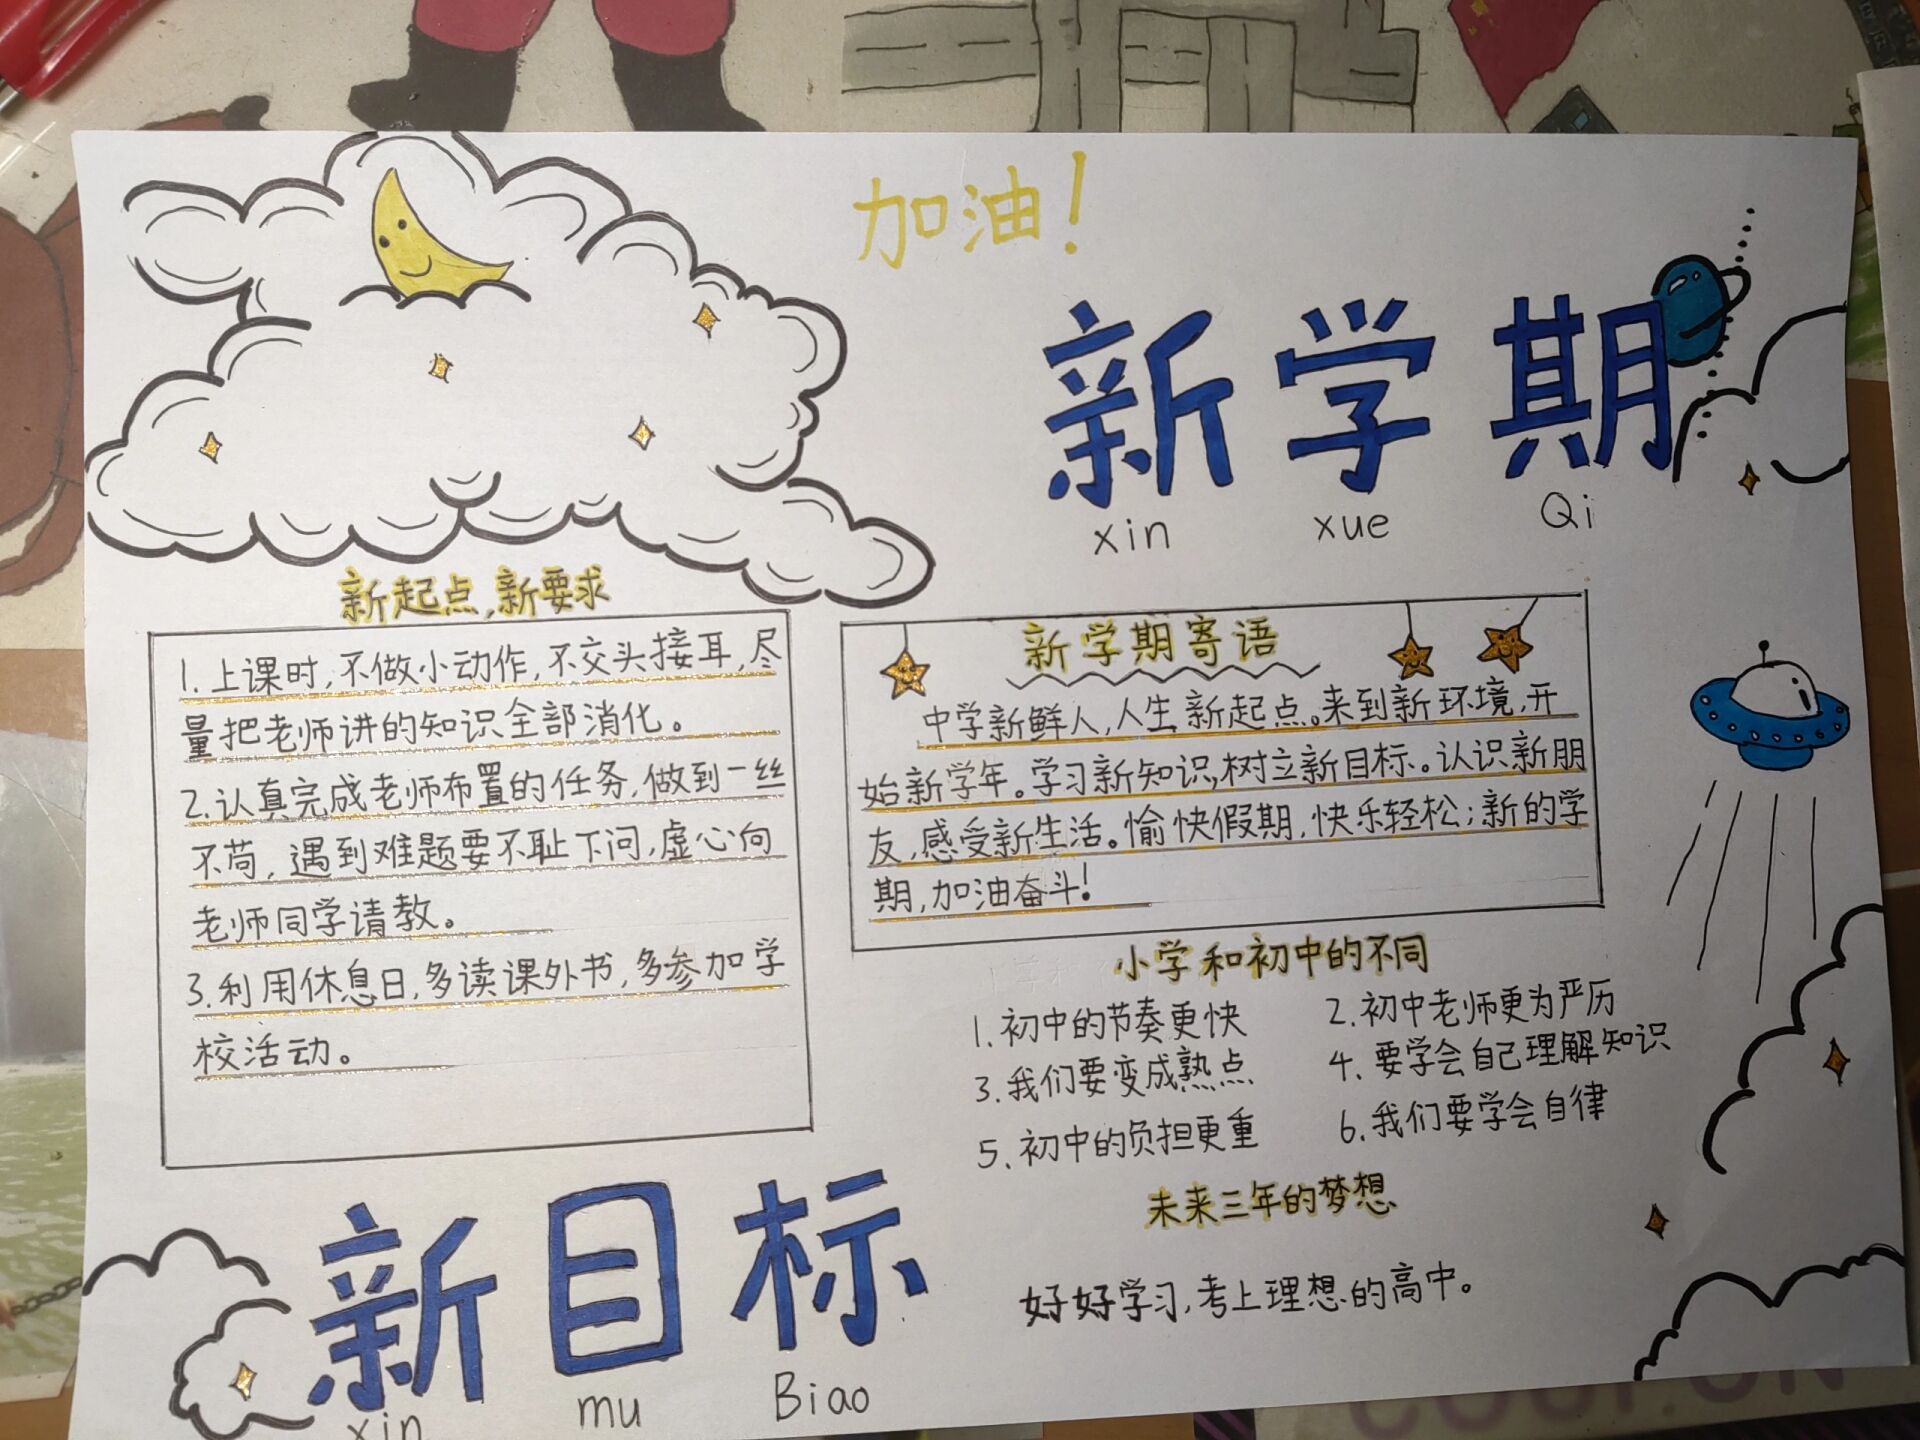 加油!
新学期
xin xue Qi
新起点,新要求
1.上课时,不做小动作,不交头接耳,尽
量把老师讲的知识全部消化。
2.认真完成老师布置的任务,做到一丝
不苟,遇到难题要不耻下问,虚心向
老师同学请教。
3.利用休息日,多读课外书,多参加学
校活动。
新学期寄语
中学新鲜人,人生新起点。来到新环境,开
始新学年。学习新知识,树立新目标。认识新朋
友,感受新生活。愉快假期,快乐轻松;新的学
期,加油奋斗!
小学和初中的不同
1.初中的节奏更快
2.初中老师更为严历
3.我们要变成熟点
4.要学会自己理解知识
5.初中的负担更重
6.我们要学会自律
未来三年的梦想
好好学习,考上理想的高中。
新目标
xin mu Biao